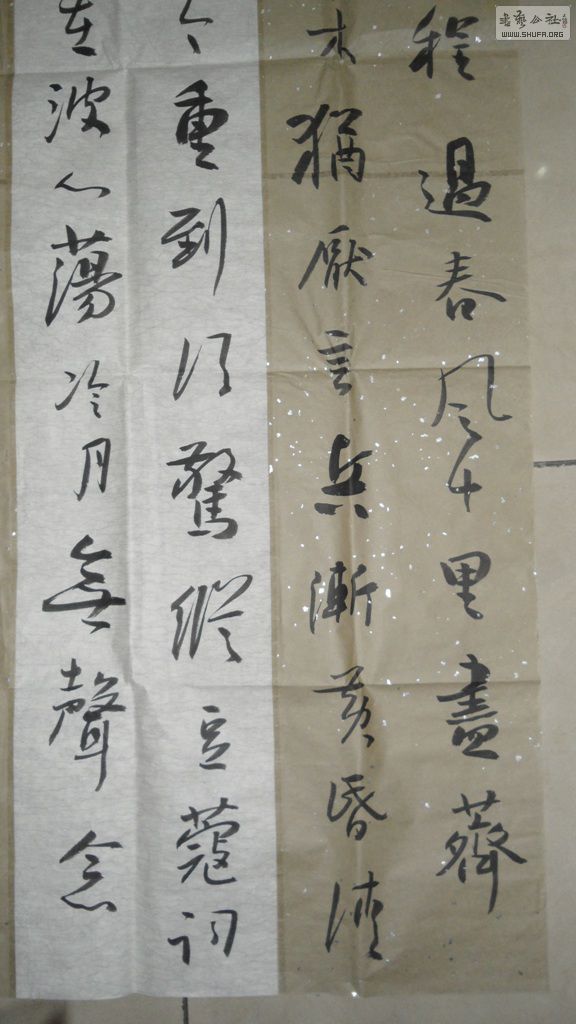 程過春風十里盡薺
木猶厭言兵漸黃昏清
今重到須驚縱豆蔻詞
在波心蕩冷月無聲念
書藝公社
WWW.SHUFA.ORG